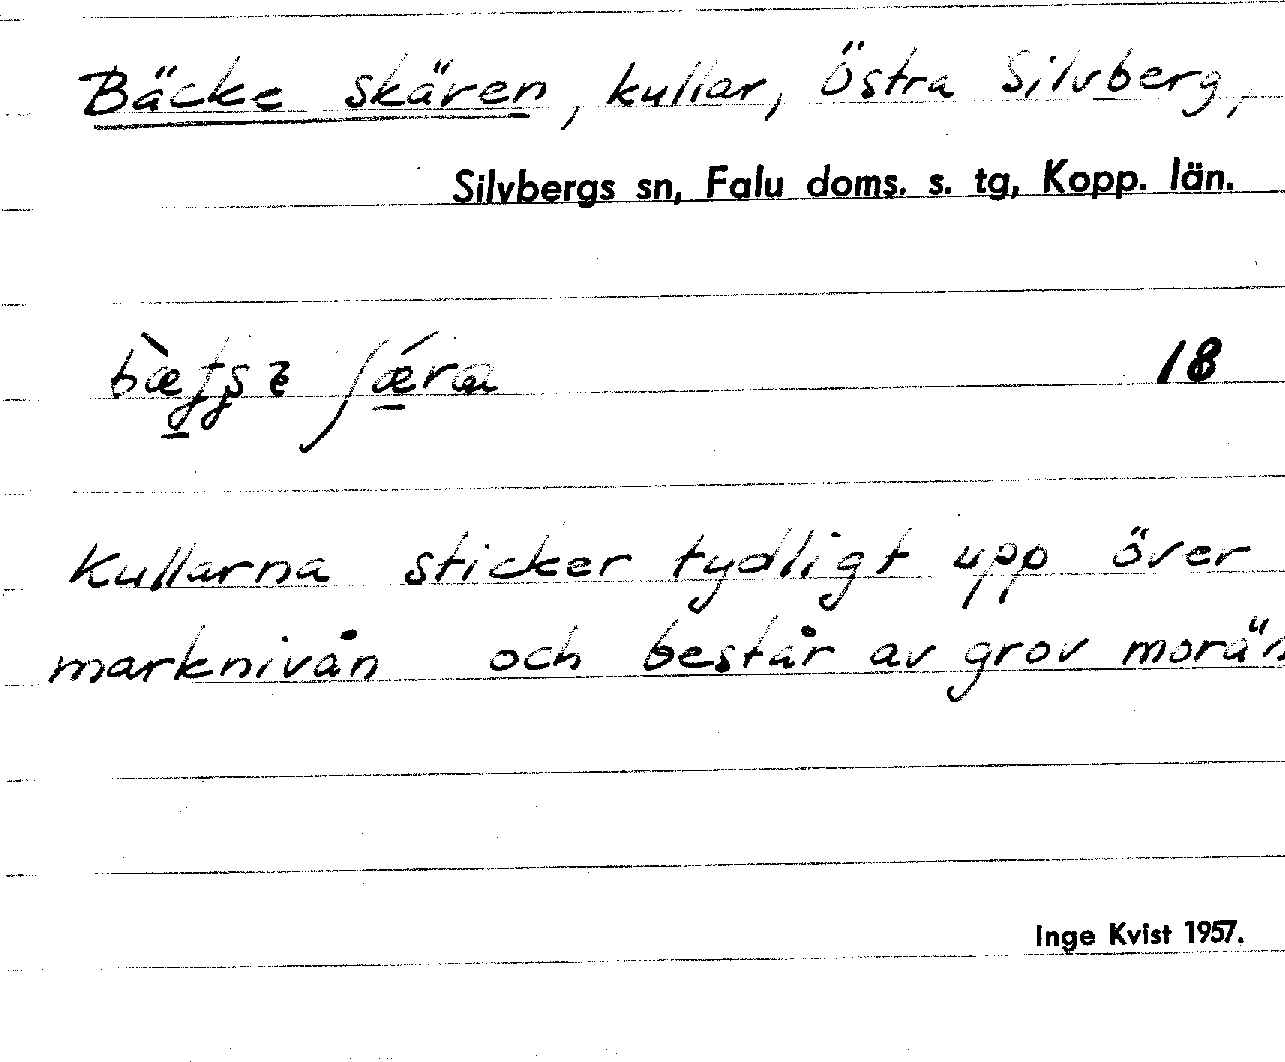 Bäcke skären, kullar, Östra Silvberg,
Silvbergs sn, Falu doms. s. tg, Kopp. län.
18
Kullarna sticker tydligt upp över
marknivån och består av grov morän
Inge Kvist 1957.